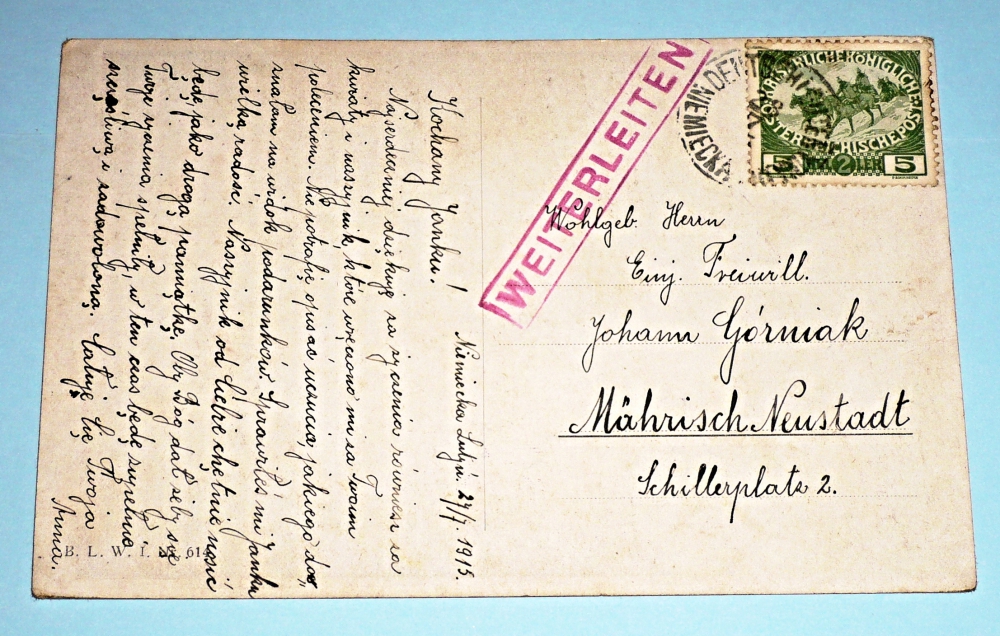 Kochany Janku!
Niemiecka Lutyń. 27/7 1915.
Najserdeczniej dziękuję za życzenia również za
kwiaty i naszyjnik które wręczono mi za Twoim
poleceniem. Nie potrafię opisać uczucia, jakiego doz„
nałam na widok podarunków. Sprawiłeś mi Janku
wielką radość. Naszyjnik od Ciebie chętnie nosić
będę jako drogą pamiątkę. Oby Bóg dał żeby się
Twoje życzenia spełniły, w ten czas będę zupełnie
szczęśliwą i zadowoloną. Całuję Cię Twoja
Anna.
B. L. W. I. 614
WEITERLEITEN
KAISERLICHE KÖNIGLICHE
ÖSTERREICHISCHE POST
5 2 5
NIEMIECKA
Wohlgeb. Herrn
Einj. Freiwill.
Johann Górniak
Mährisch Neustadt
Schillerplatz 2.